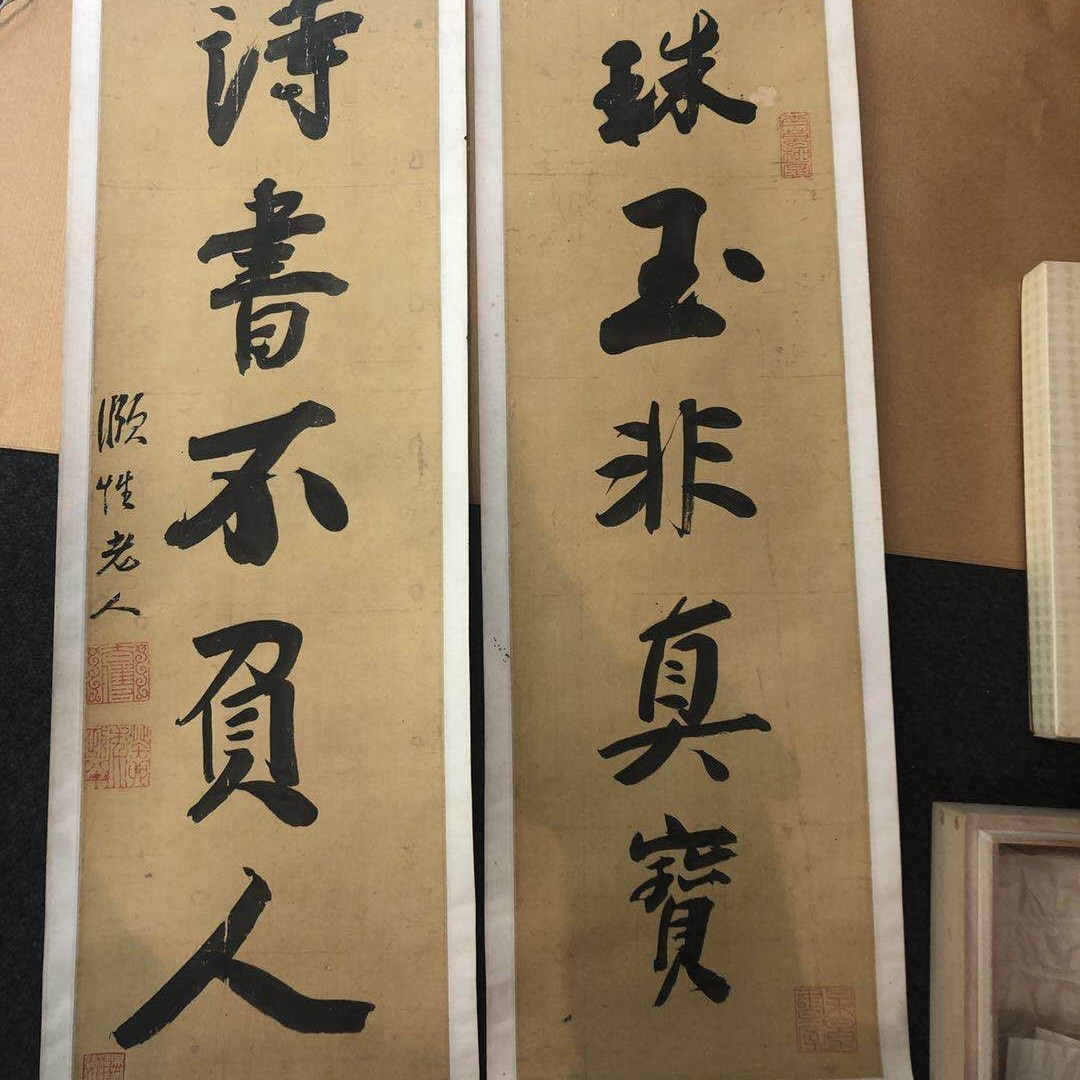 珠玉非真寶
詩書不負人
瀕性老人